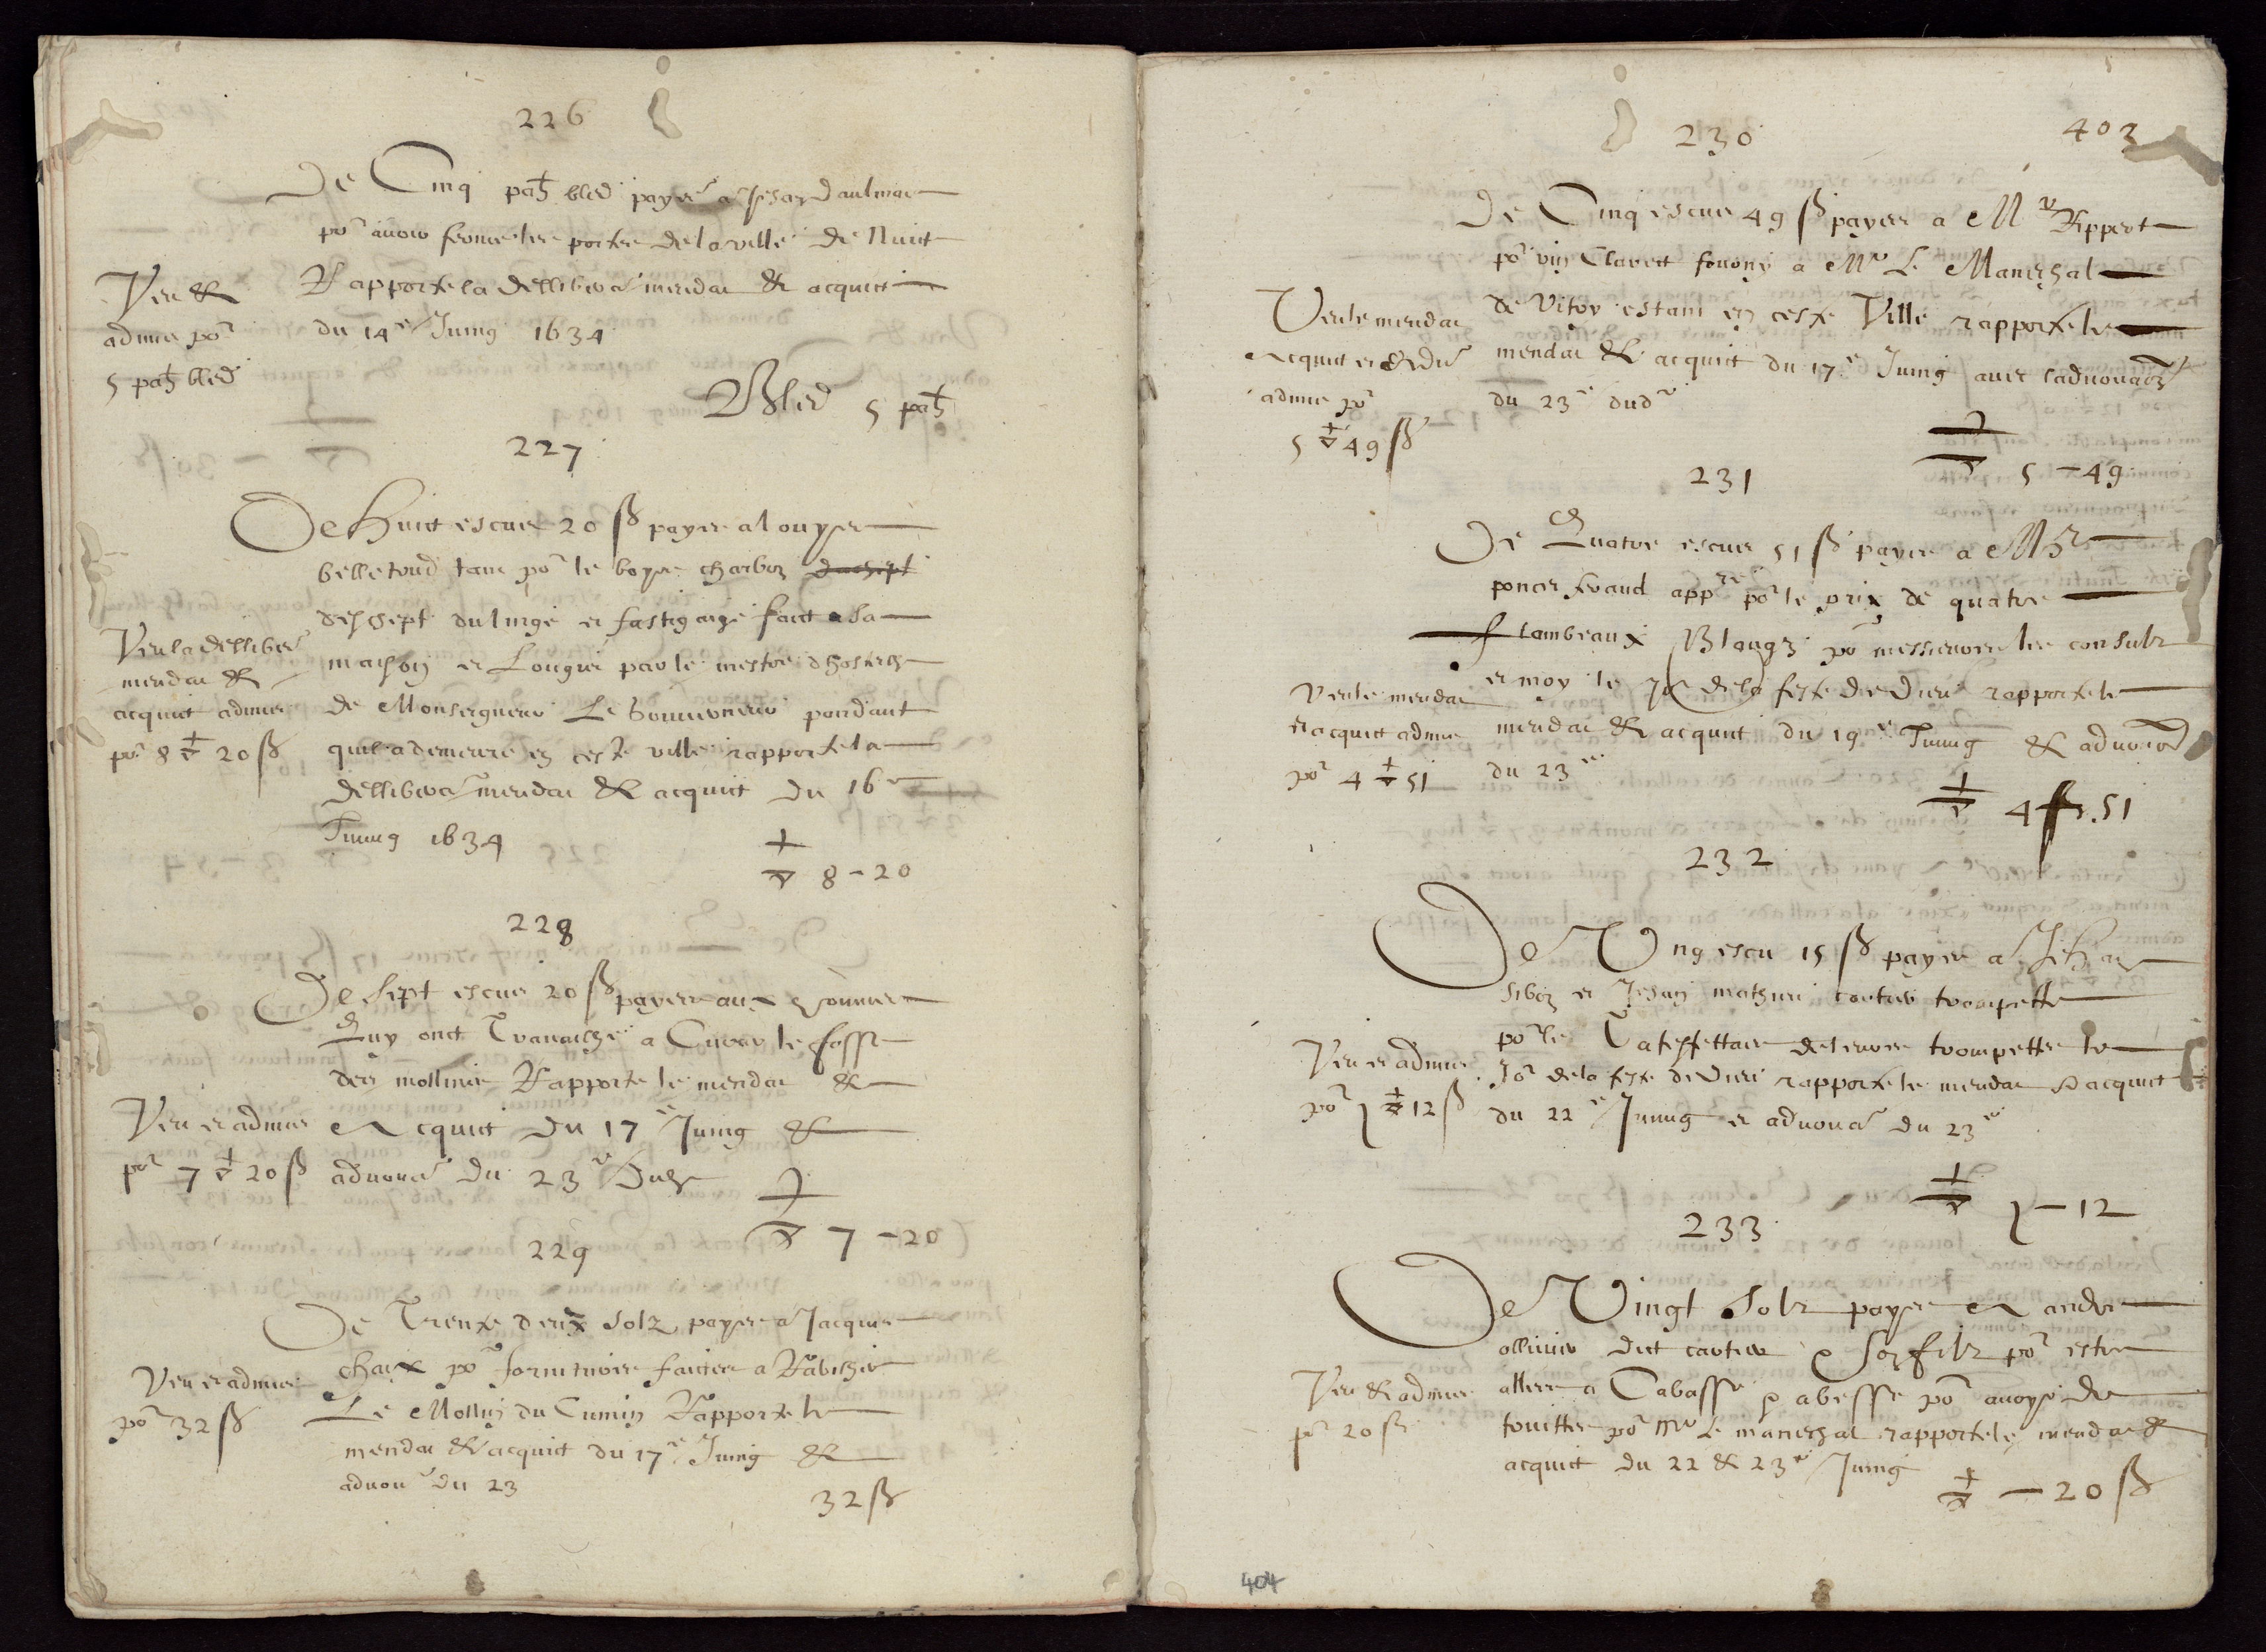 226
De Cinq pah bled payer a Jehan daulmar
por avoir fermer les portes de la ville de Nuict
Rapporte la dellibera mendat & acquict
du 14e Juing 1634
Veu &
admis por
5 pah bled
Bled 5 pah
227
De huict escus 20 ß payes a louyse
belletrud tant por le boys charbon
dessept du linge et fait a la
maison et Lougis par le mestre dhostel
de Monseigneur Le Gouverneur pandant
quil a demeuré en ceste ville rapporte la
dellibera mendat & acquict du 16e
Juing 1634
Veu la delliber
mendat &
acquict admis
por 8 20 ß
8 - 20
228
De Sept escus 20 ß payes aux
Quy ont Travaillé a Curer le fosse
des mollins Rapporte le mendat &
Acquict du 17e Juing &
advoua du 23e
Veu et admis
por 7 20 ß
7 - 20
229
De Trente deux solz payes a Jacques
chaix por fornitures faictes a Rabilher
Le Mollin du Cumin Rapporte le
mendat & acquict du 17e Juing &
advou du 23
Veu et admis
por 32 ß
32 ß
230
403
De Cinq escus 49 ß payes a Mr Rippert
por vin Claret forony a Mr Le Mareschal
de Vitry estant en ceste Ville rapporte le
mendat & acquict du 17e Juing avec ladvouaon
du 23e dud
Veu le mendat
Acquict et
admis por
5 49 ß
5 - 49
231
De Quatre escus 51 ß payes a Mr
ponce feraud appre por le prix de quatre
flambeaux Blangz por messieurs les consulz
et moy le Jor de la feste de Dieu rapporte le
mendat & acquict du 19e Juing & advouaon
du 23e
Veu le mendat
et acquict admis
por 4 51
4 51
232
De Ung escu 15 ß payes a Jehan
et Jehan mathieu trompette
por le de leurs trompettes le
Jor de la feste de Dieu rapporte le mendat & acquict
du 22e Juing et advoua du 23e
Veu et admis
por 1 12 ß
1 - 12
233
De Vingt Solz payes A andre
ollivier dict cartier & Son filz por estre
alles a Cabasse & a besse por avoyr de
truittes por Mr Le mareschal rapporte le mendat &
acquict du 22 & 23e Juing
Veu & admis
por 20 ß
- 20 ß
404